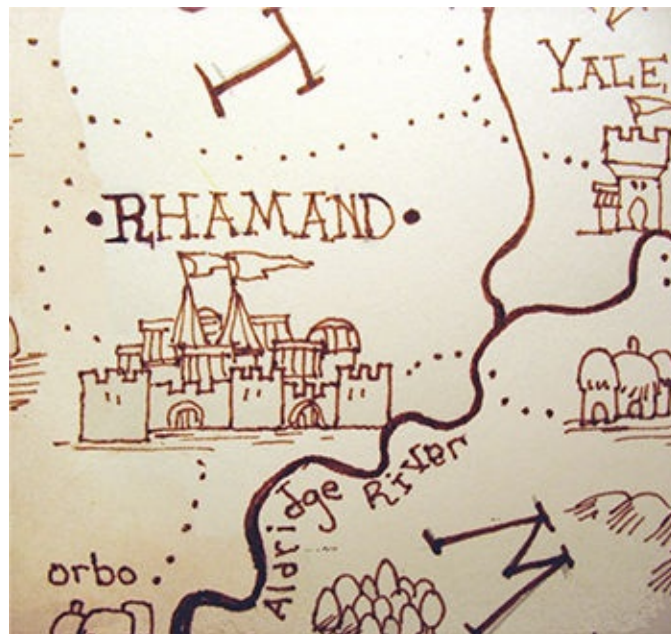 I
YALE
RHAMAND
Aldridge River
orbo
M